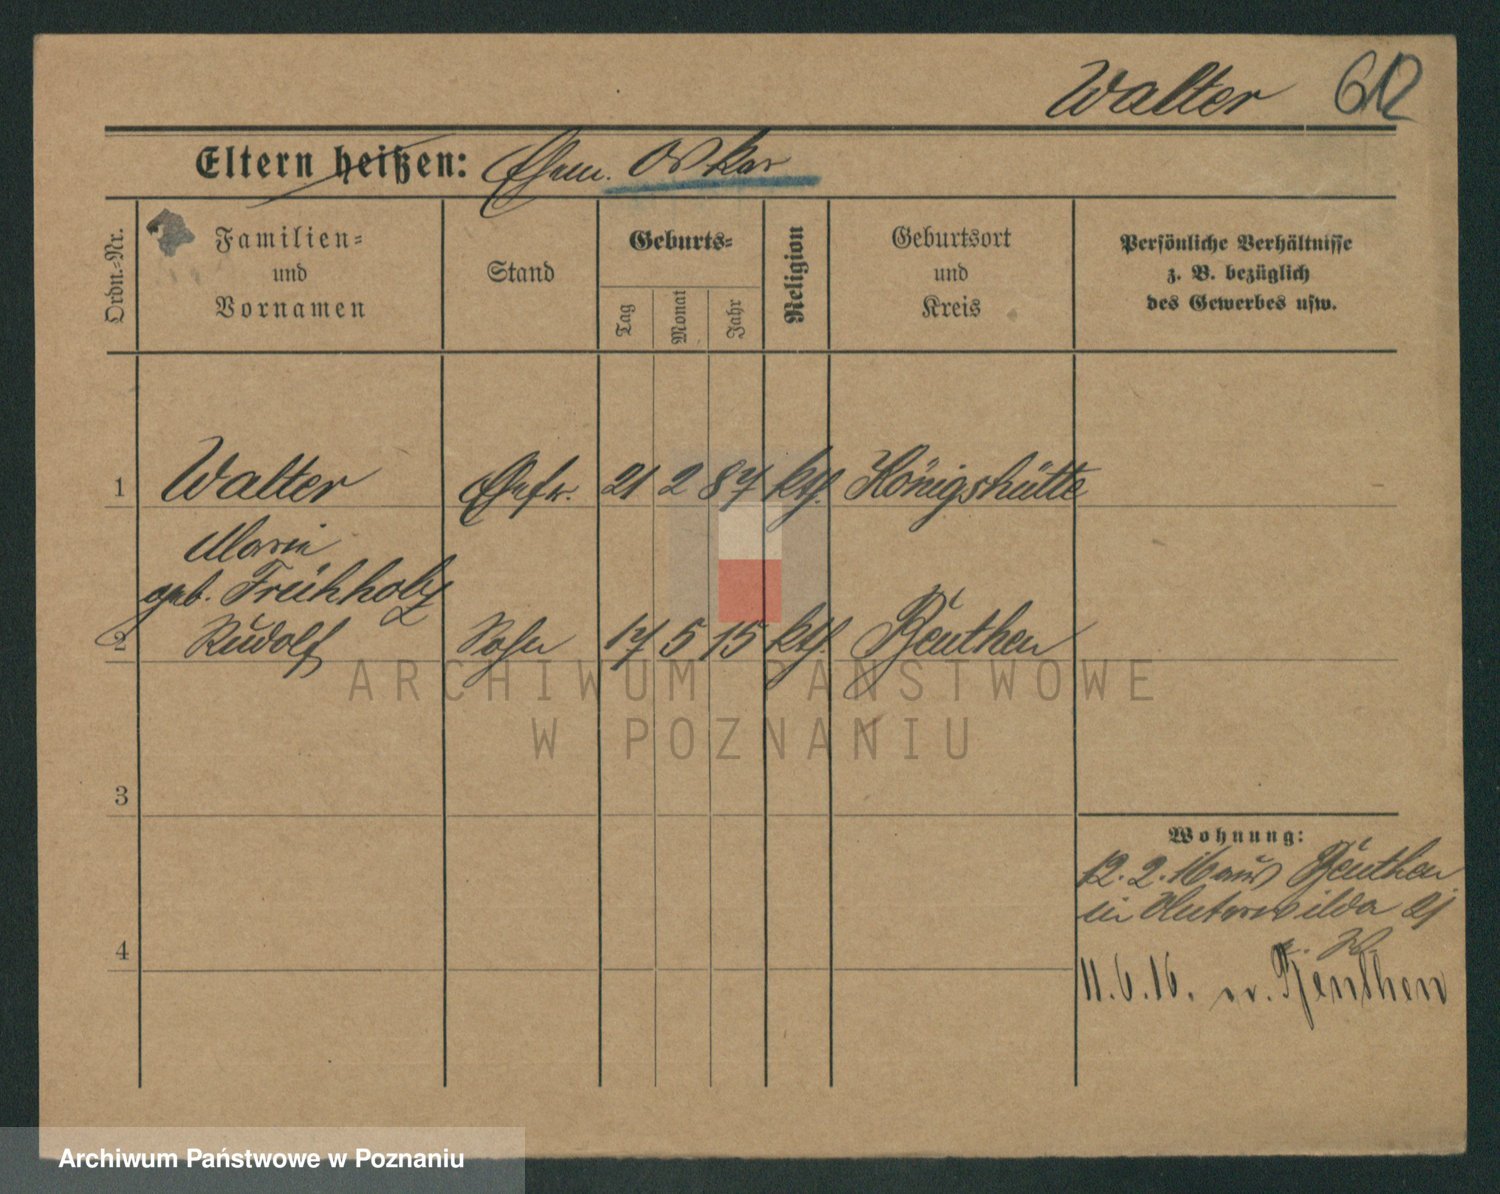 Walter 612
Eltern heißen: Ehem. Oskar
Ordn.-Nr.
Familien-
und
Vornamen
Stand
Geburts-
Tag
Monat
Jahr
Religion
Geburtsort
und
Kreis
Persönliche Verhältnisse
z. B. bezüglich
des Gewerbes usw.
1 Walter Ehefr. 21 2 87 kth. Königshütte
Marie
geb. Frühholz
2 Rudolf Sohn 17 5 15 kth. Beuthen
3
4
Wohnung:
12. 2. 16 aus Beuthen
in Unterwilda 21
11.6.16. n. Beuthen
ARCHIWUM PAŃSTWOWE
W POZNANIU
Archiwum Państwowe w Poznaniu